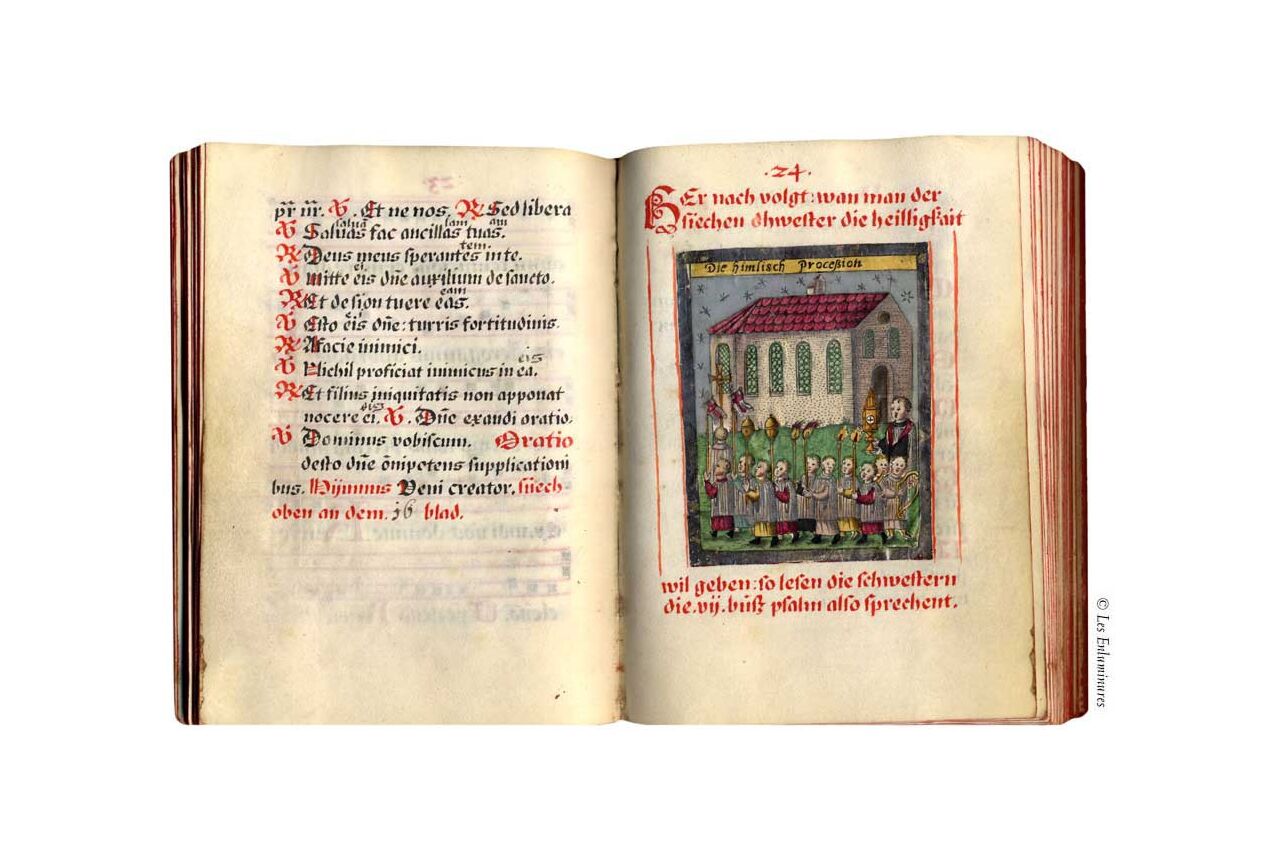 pr̄ nr̄. V. Et ne nos. R Sed libera
V Saluas fac ancillas tuas.
saluā fam am
R Deus meus sperantes in te.
tem
V Mitte eis dn̄e auxilium de sancto.
ei
R Et de sion tuere eas.
eam
V Esto eis dn̄e: turris fortitudinis.
ei
R A facie inimici.
V Nichil proficiat inimicus in ea.
eis
R Et filius iniquitatis non apponat
nocere ei. V. Dn̄e exaudi oratio.
eis
V Dominus vobiscum. Oratio
desto dn̄e om̄ipotens supplicationi
bus. Veni creator. suech
oben an dem. 16 blad.
·24·
HEr nach volgt: wan man der
siechen schwester die heilligkait
Die himlisch Proceßion
wil geben: so lesen die schwestern
die. vij. bůsz psalm also sprechent.
© Les Enluminures